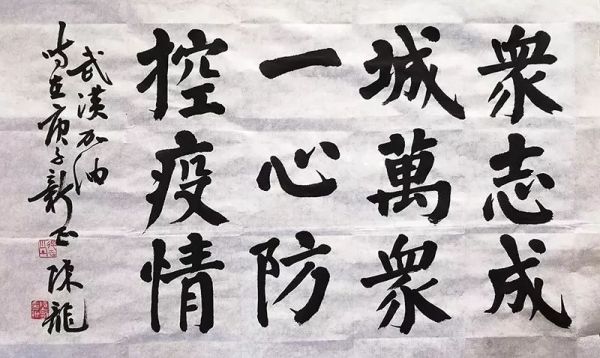 衆志成
城萬衆
一心防
控疫情
武漢加油
时在庚子新正 陳龍